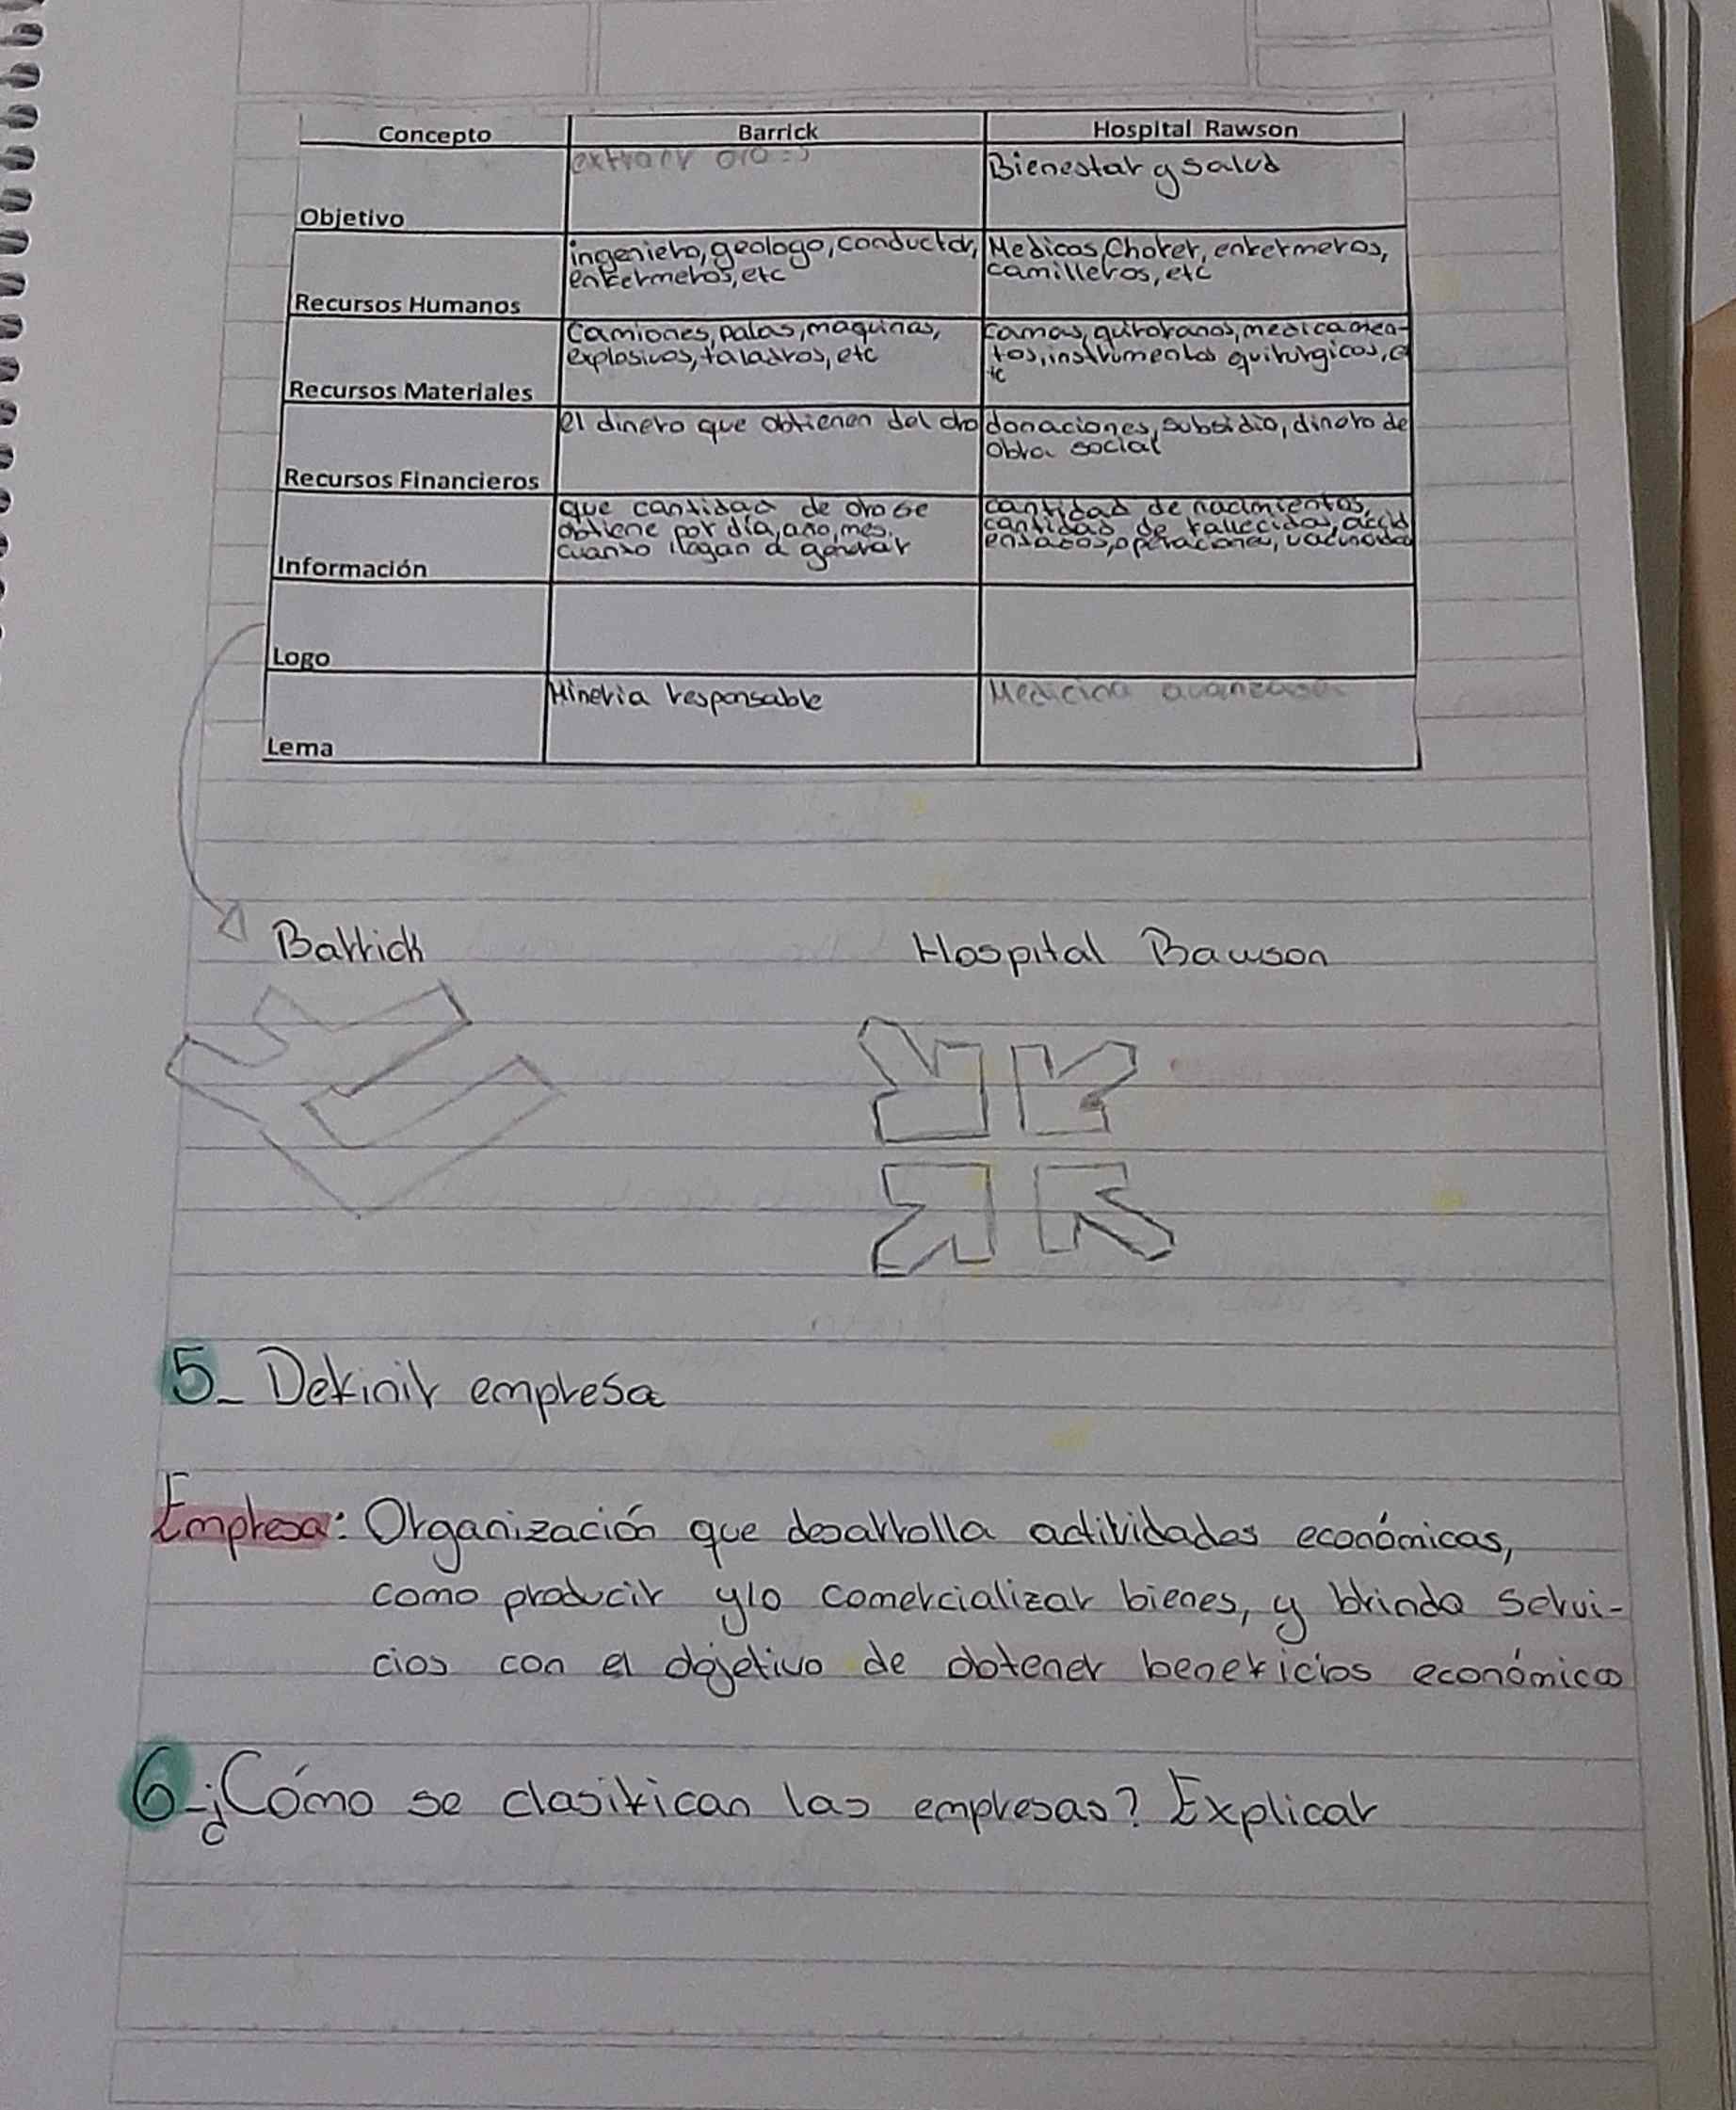 Concepto Barrick Hospital Rawson
extraer oro :)
Bienestar y salud
Objetivo
ingeniero, geologo, conductor,
enfermeros, etc
Medicos, Chofer, enfermeros,
camilleros, etc
Recursos Humanos
Camiones, palas, maquinas,
explosivos, taladros, etc
camas, quirofanos, medicamen-
tos, instrumentos quirurgicos, e
tc
Recursos Materiales
el dinero que obtienen del oro
donaciones, subsidio, dinero de
obra social
Recursos Financieros
que cantidad de oro se
obtiene por día, año, mes.
cuanto llegan a generar
cantidad de nacimientos,
cantidad de fallecidos, accid
entados, operaciones, vacunados
Información
Logo
Mineria responsable
Medicina avanzada
Lema
Barrick Hospital Rawson
5_ Definir empresa
Empresa: Organización que desarrolla actividades económicas,
como producir y/o comercializar bienes, y brinda servi-
cios con el objetivo de obtener beneficios económico
6-¿Cómo se clasifican las empresas? Explicar